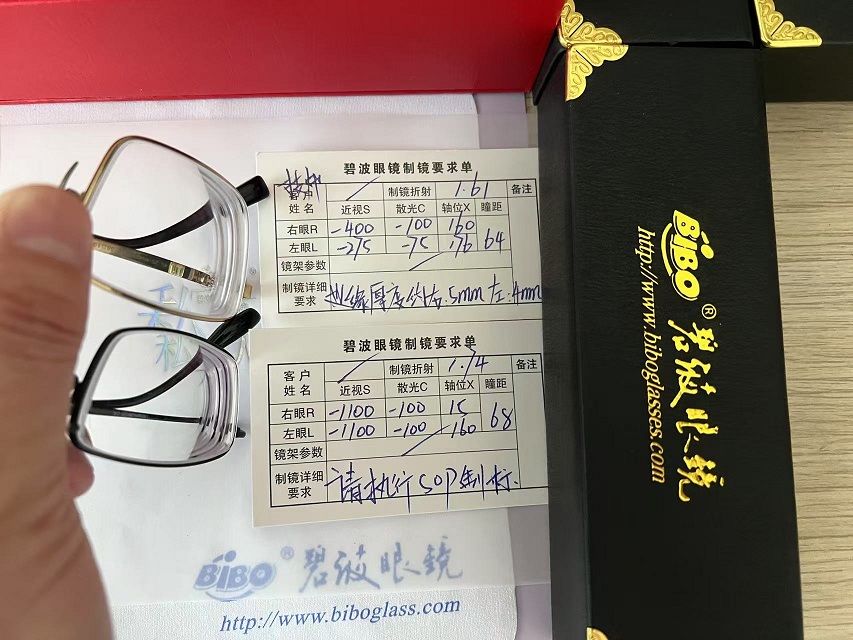 碧波眼镜制镜要求单
客户姓名 制镜折射 1.61 备注
近视S 散光C 轴位X 瞳距
右眼R -400 -100 160
左眼L -275 -75 176 64
镜架参数
制镜详细要求 边缘厚度约右.5mm左.4mm
碧波眼镜制镜要求单
客户姓名 制镜折射 1.74 备注
近视S 散光C 轴位X 瞳距
右眼R -1100 -100 15
左眼L -1100 -100 160 68
镜架参数
制镜详细要求 请执行SOP制标.
BiBO®碧波眼鏡
http://www.biboglass.com
BiBO®碧波眼鏡
http://www.biboglasses.com